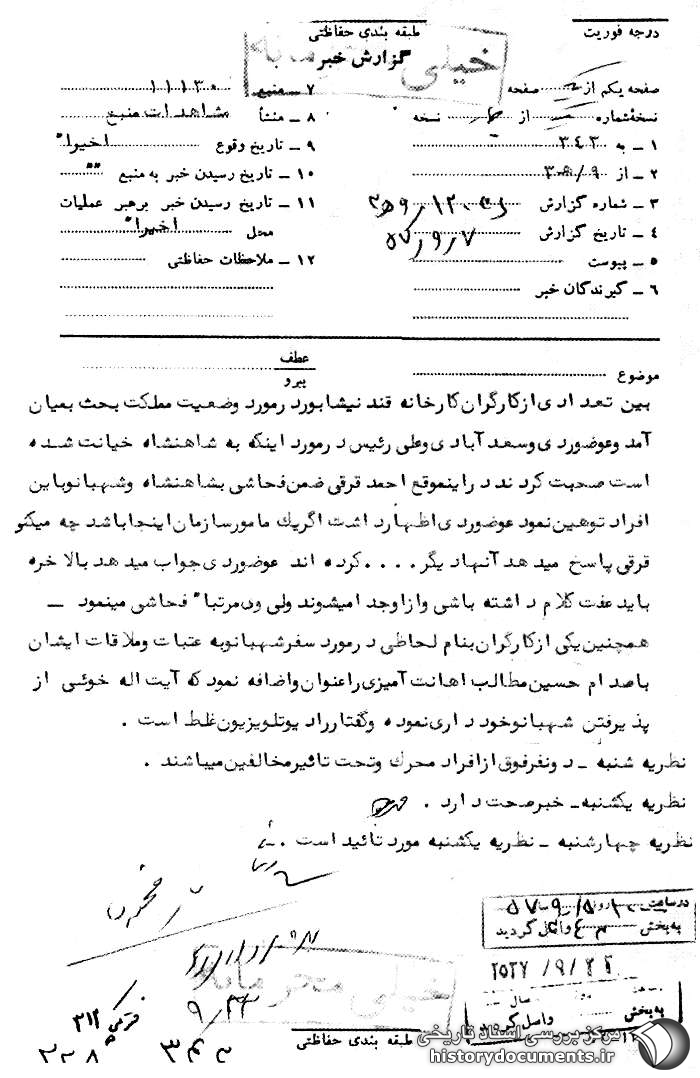 درجه فوریت
طبقه بندی حفاظتی
خیلی محرمانه
گزارش خبر
صفحه یکم از صفحه
نسخهٔ شماره از نسخه
۱ ـ به ۳۴۳
۲ ـ از ۳۰۵/۹
۳ ـ شماره گزارش
۴ ـ تاریخ گزارش ۵۷/۹/۷
۵ ـ پیوست
۶ ـ گیرندگان خبر
۷ ـ منبع ۱۱۱۳۰
۸ ـ منشأ مشاهدات منبع
۹ ـ تاریخ وقوع اخیراً
۱۰ ـ تاریخ رسیدن خبر به منبع "
۱۱ ـ تاریخ رسیدن خبر برهبر عملیات
محل اخیراً
۱۲ ـ ملاحظات حفاظتی
موضوع
عطف
پیرو
بین تعدادی از کارگران کارخانه قند نیشابور در مورد وضعیت مملکت بحث بمیان
آمد و عوضوردی و سعدآبادی و علی رئیس در مورد اینکه به شاهنشاه خیانت شده
است صحبت کردند در اینموقع احمد قرقی ضمن فحاشی بشاهنشاه و شهبانو باین
افراد توهین نمود عوضوردی اظهار داشت اگر یك مامور سازمان اینجا باشد چه میکنو
قرقی پاسخ میدهد آنها دیگر .... کرده اند عوضوردی جواب میدهد بالاخره
باید عفت کلام داشته باشی و از او جدا میشوند ولی وی مرتباً فحاشی مینمود ـ
همچنین یکی از کارگران بنام لحاظی در مورد سفر شهبانو به عتبات و ملاقات ایشان
با صدام حسین مطالب اهانت آمیزی را عنوان و اضافه نمود که آیت اله خوئی از
پذیرفتن شهبانو خودداری نموده و گفتار رادیو تلویزیون غلط است .
نظریه شنبه ـ دو نفر فوق از افراد محرك و تحت تاثیر مخالفین میباشند .
نظریه یکشنبه ـ خبر صحت دارد .
نظریه چهارشنبه ـ نظریه یکشنبه مورد تائید است .
در ساعت روز
به بخش واصل گردید
۲۵۳۷/۹/۲۲
سال
به بخش واصل گردید
۹/۲۳
۳۱۲
خیلی محرمانه
طبقه بندی حفاظتی
مرکز بررسی اسناد تاریخی
historydocuments.ir